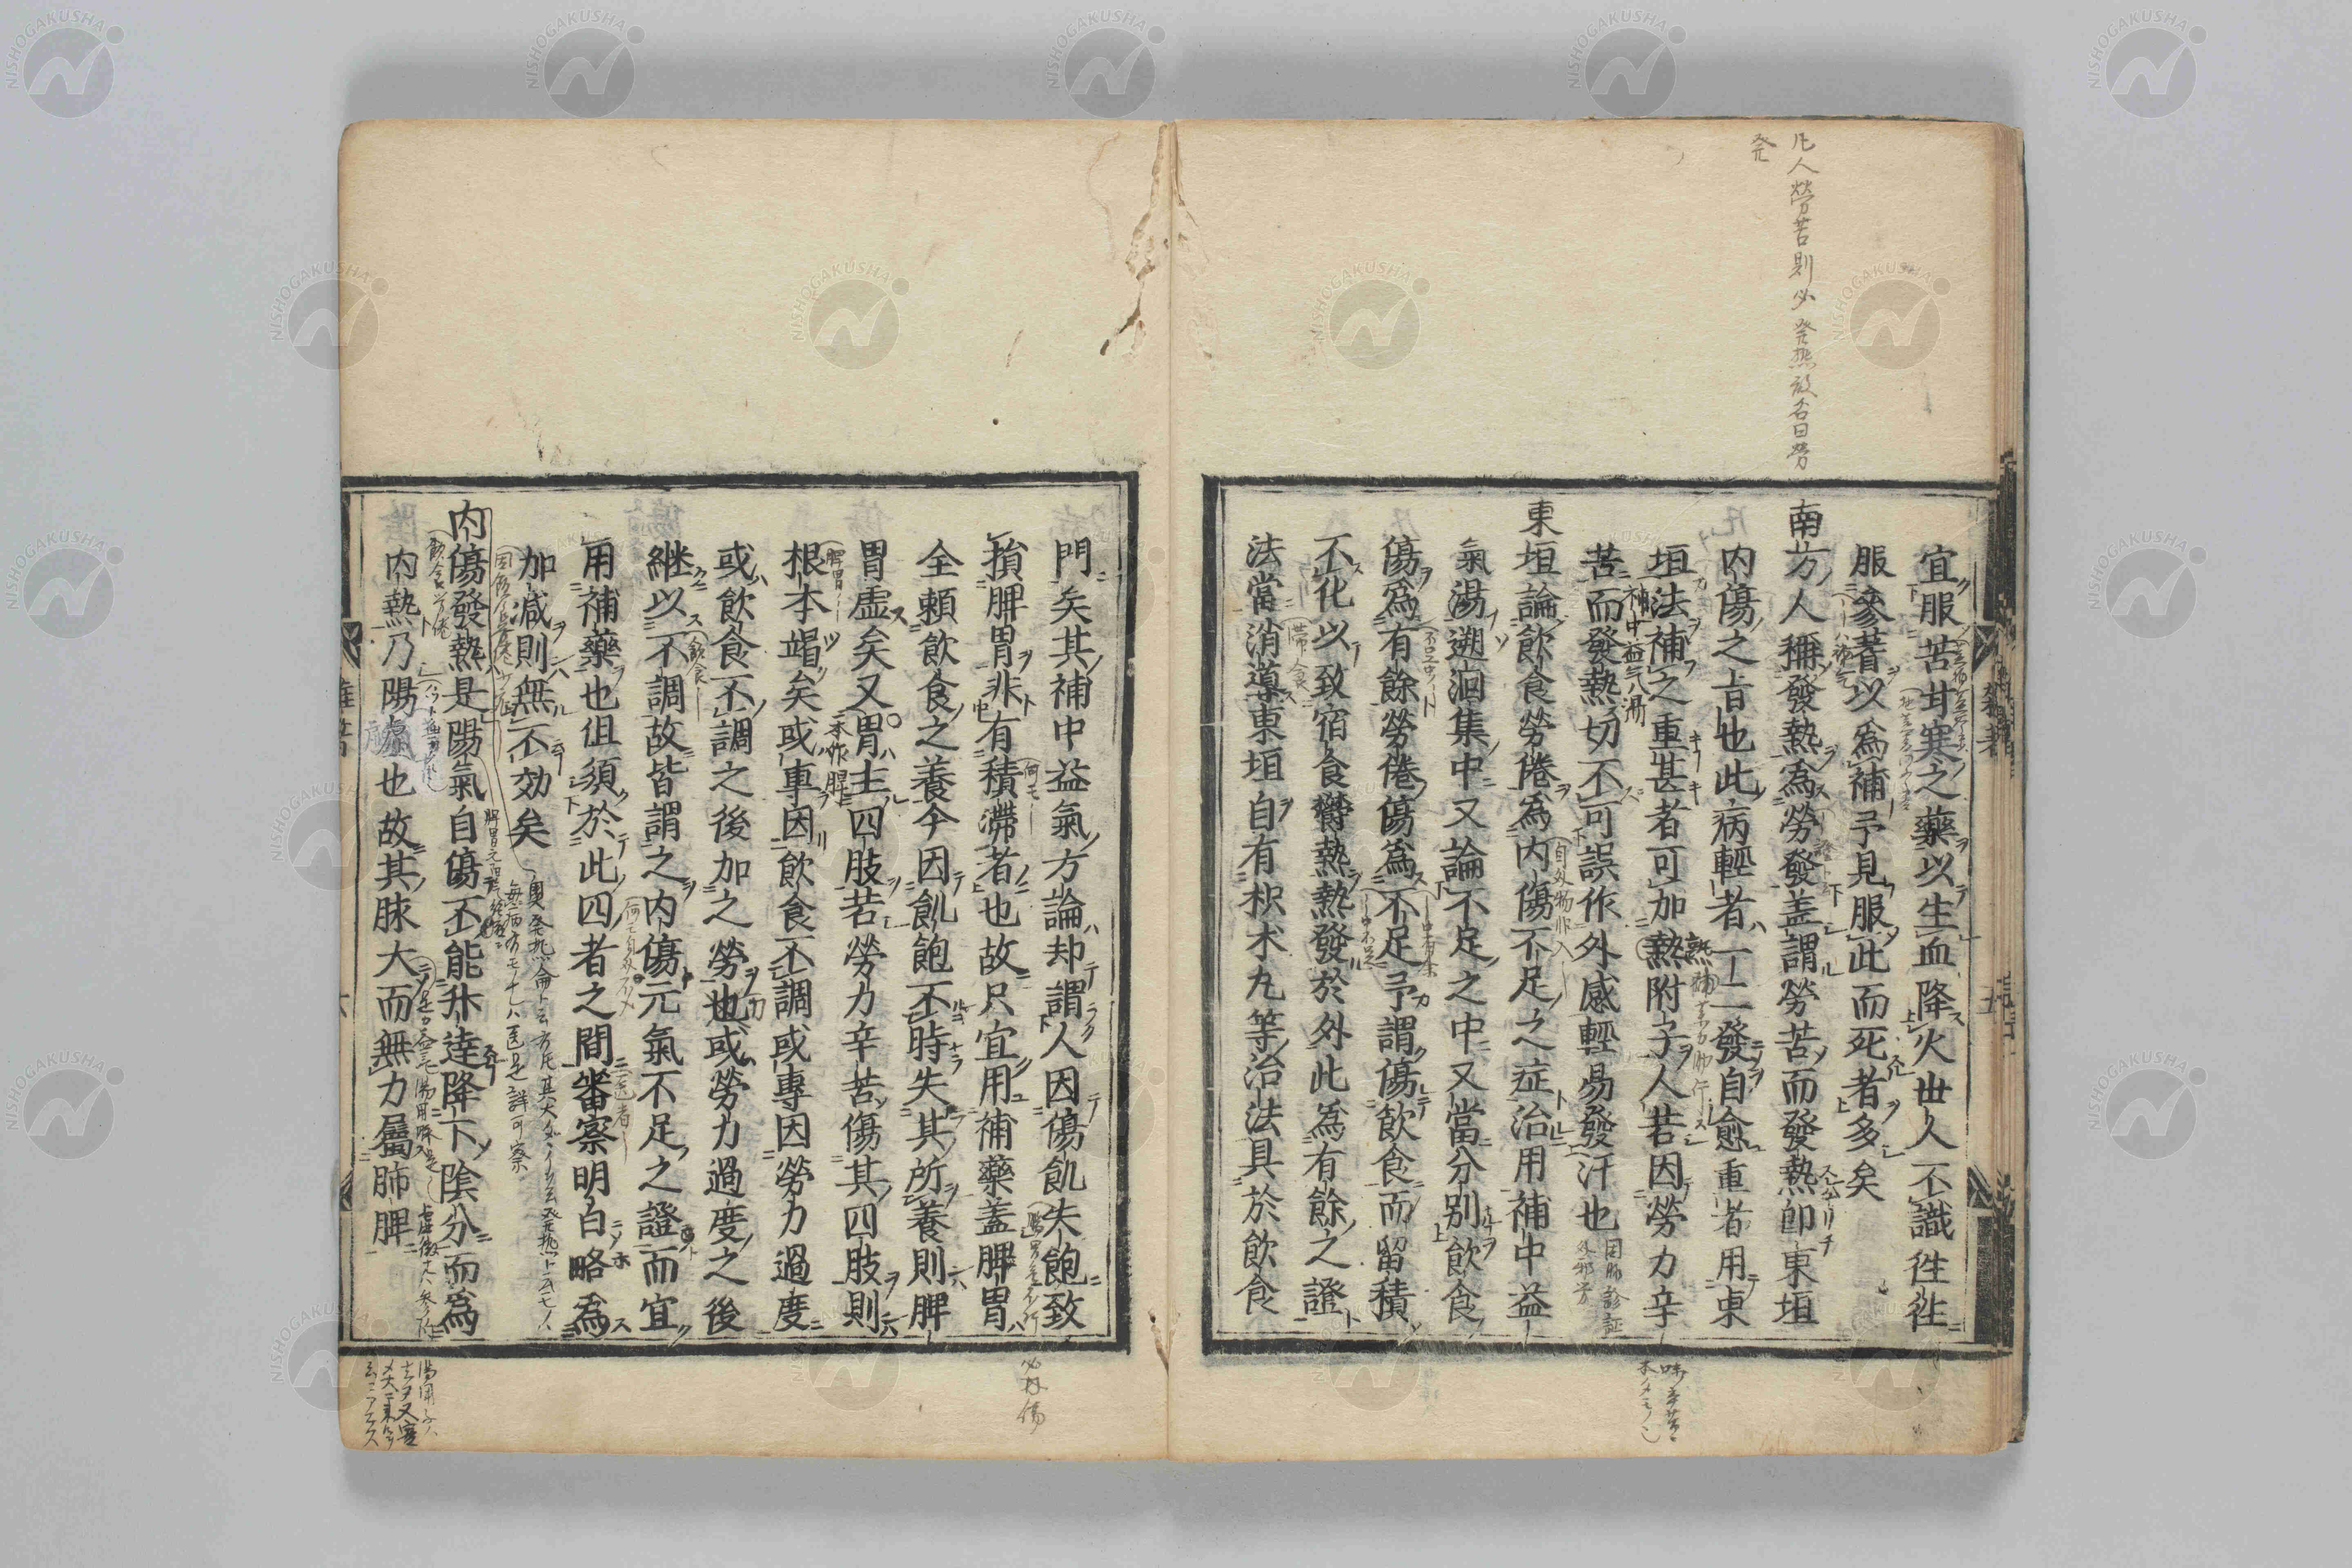 宜服苦甘寒之藥以生血降火世人不識徃徃
服參蓍以爲補予見服此而死者多矣
南方人稱發熱爲勞發蓋謂勞苦而發熱即東垣
内傷之旨也此病輕者一二發自愈重者用東
垣法補之重甚者可加熱附子人若因勞力辛
苦而發熱切不可誤作外感輕昜發汗也
東垣論飲食勞倦爲内傷不足之症治用補中益
氣湯遡洄集中又論不足之中又當分别飲食
傷爲有餘勞倦傷爲不足予謂傷飲食而留積
不化以致宿食欝熱熱發於外此爲有餘之證
法當消導東垣自有枳朮丸等治法具於飲食
門矣其補中益氣方論却謂人因傷飢失飽致
損脾胃非有積滯者也故只宜用補藥蓋脾胃
全頼飲食之養今因飢飽不時失其所養則脾
胃虚矣又胃主四肢若勞力辛苦傷其四肢則
根本竭矣或專因飲食不調或專因勞力過度
或飲食不調之後加之勞也或勞力過度之後
継以不調故皆謂之内傷元氣不足之證而宜
用補藥也但須於此四者之間審察明白略爲
加減則無不効矣
内傷發熱是陽氣自傷不能升達降下陰分而爲
内熱乃陽虚也故其脉大而無力屬肺脾
凡人勞苦則必発熱故名曰勞
発
補中益气湯
本作脾
必有傷
NISHOGAKUSHA